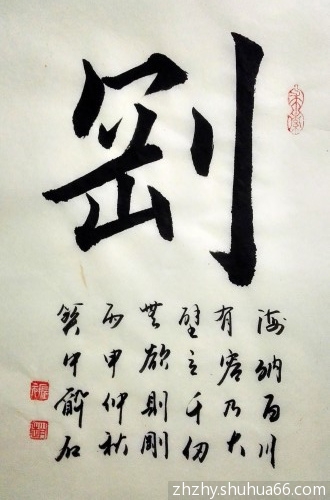 剛
海納百川
有容乃大
壁立千仞
無欲則剛
丙申仲秋
中石
zhzhy.shuhua66.com